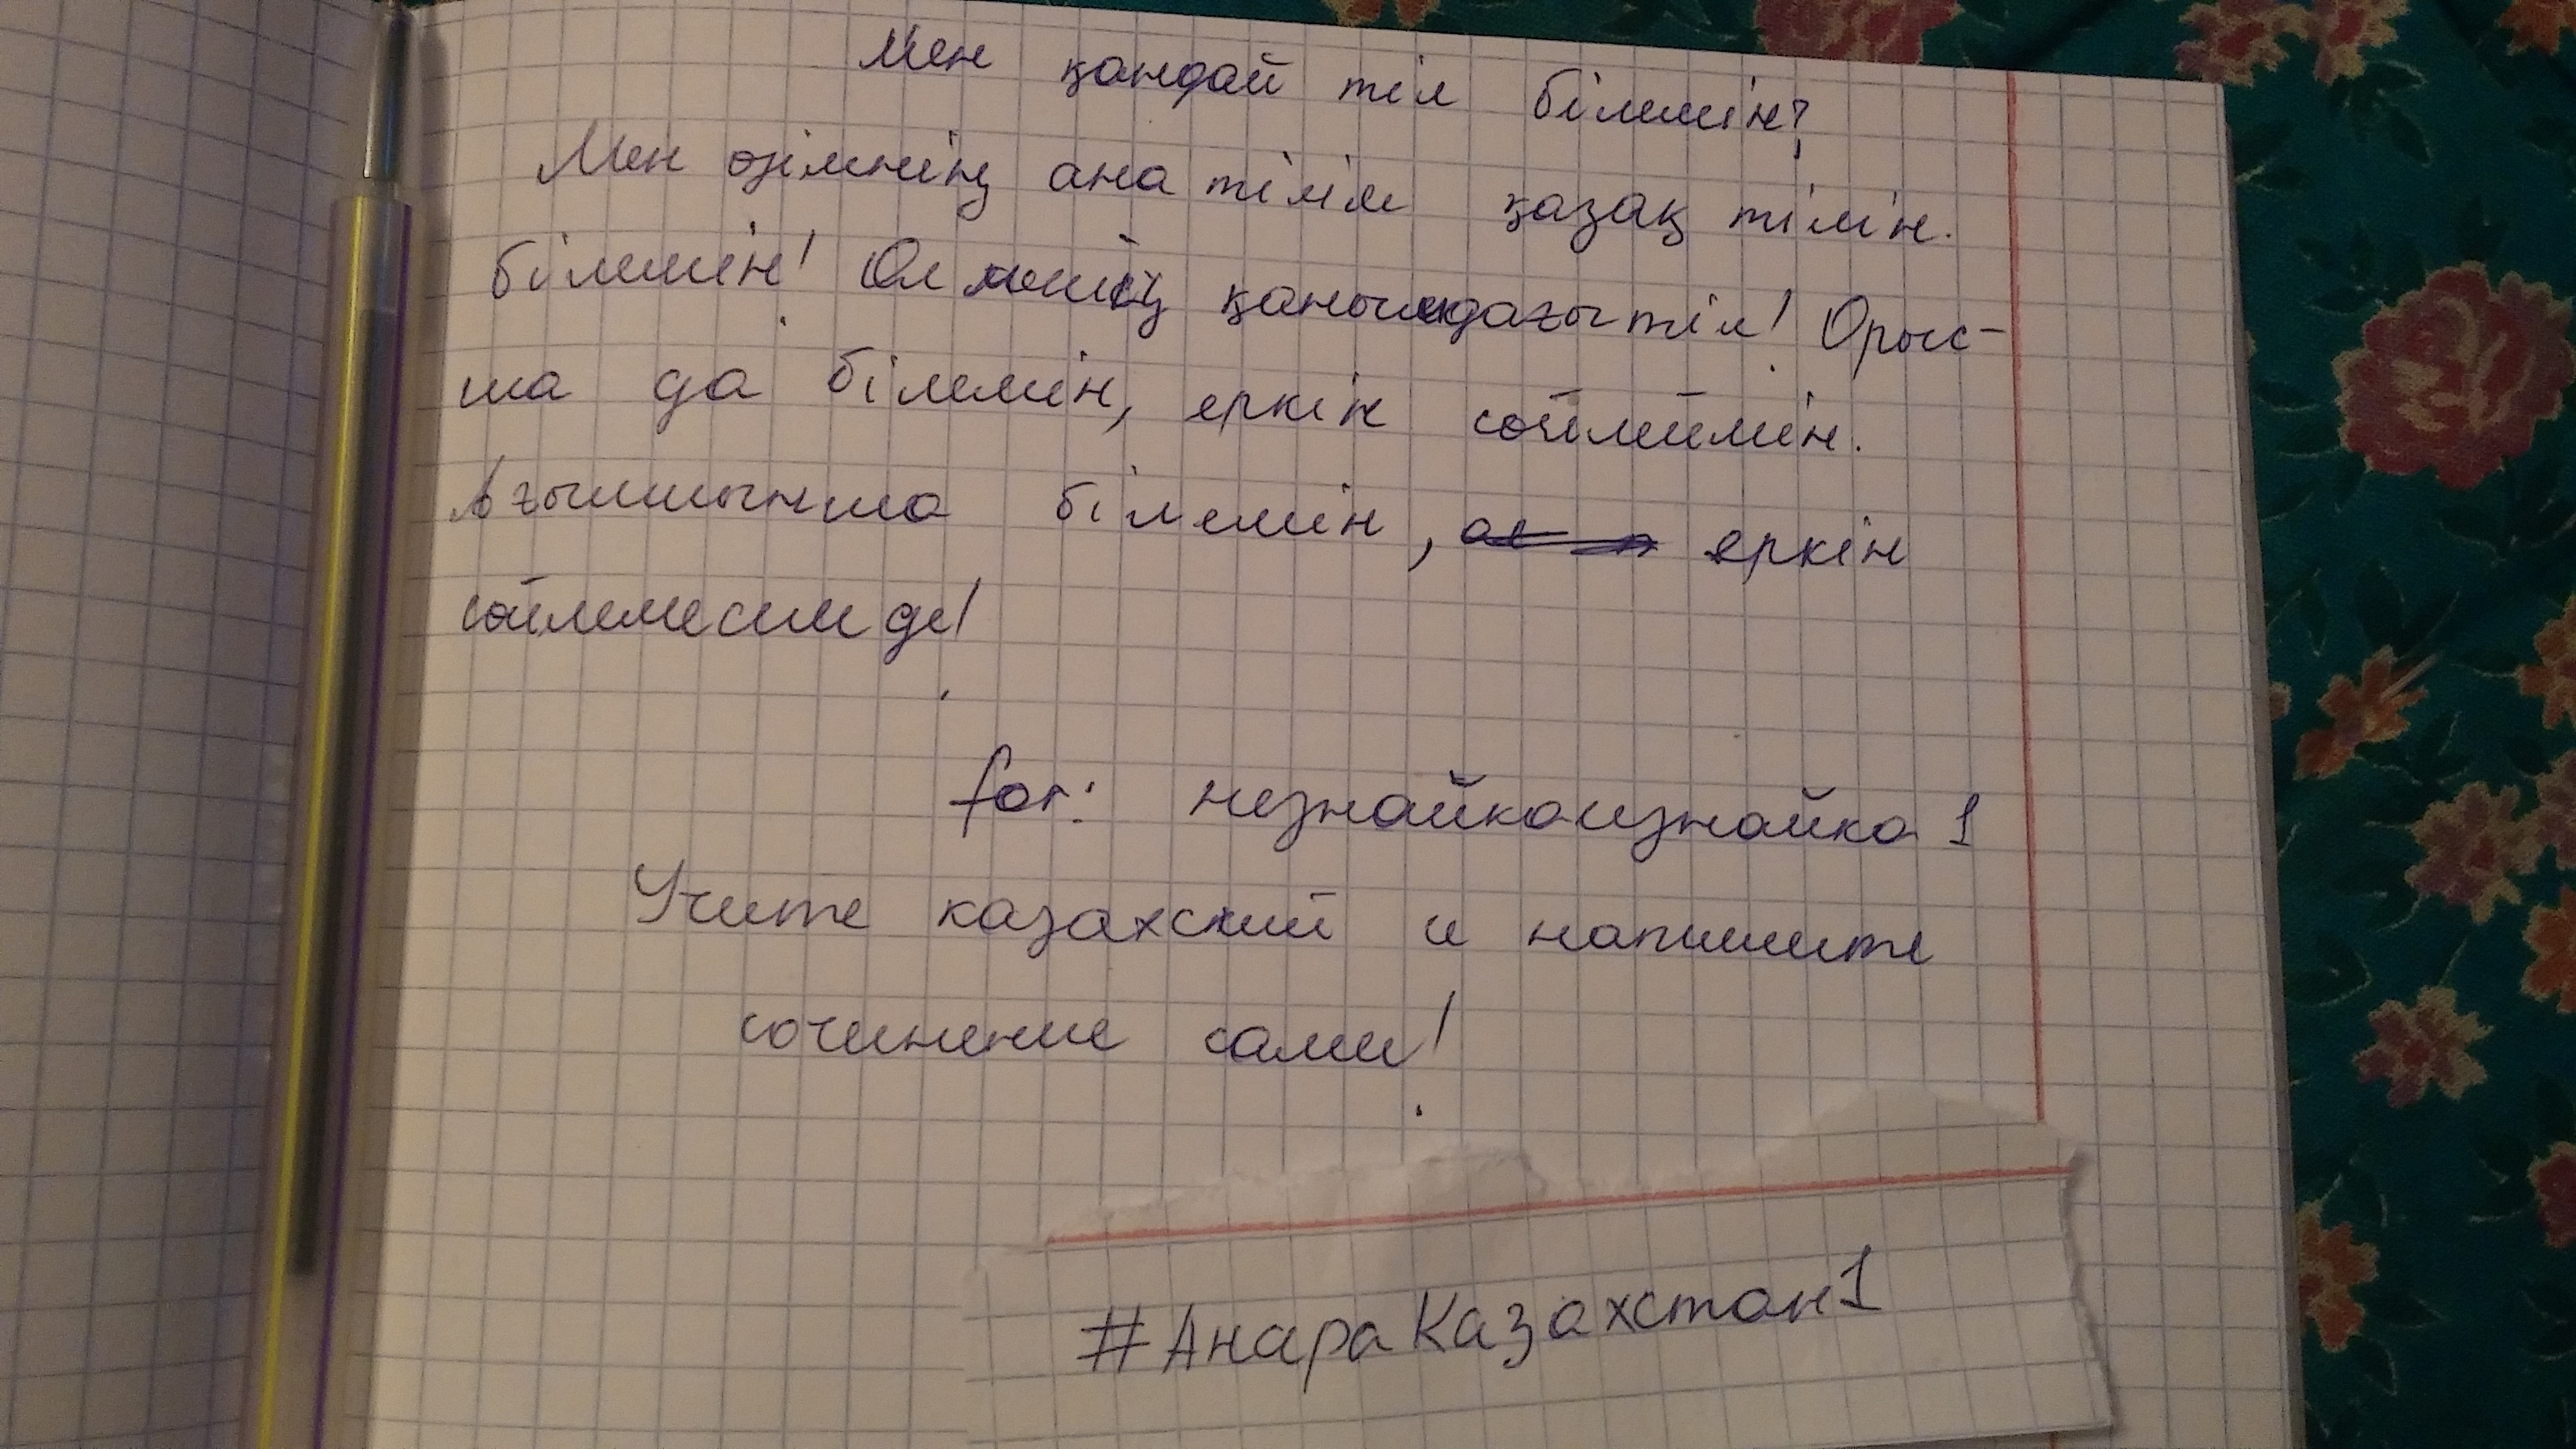 Мен қандай тіл білемін?
Мен өзімнің ана тілім қазақ тілін.
білемін! Ол менің қанымдағы тіл! Орыс-
ша да білемін, еркін сөйлеймін.
Ағылшынша білемін, еркін
сөйлемесем де!
for: незнайкаизнайка 1
Учите казахский и напишите
сочинение сами!
#АнараКазахстан1